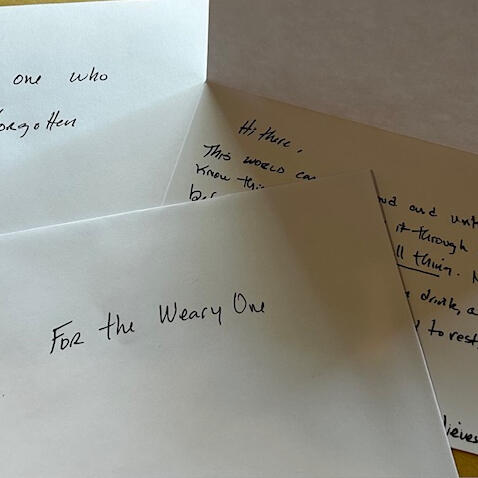 one who
forgotten
Hi there,
This world can
Know this
and unk
it through
ll thing.
drink, a
to rest,
lieves
For the Weary One